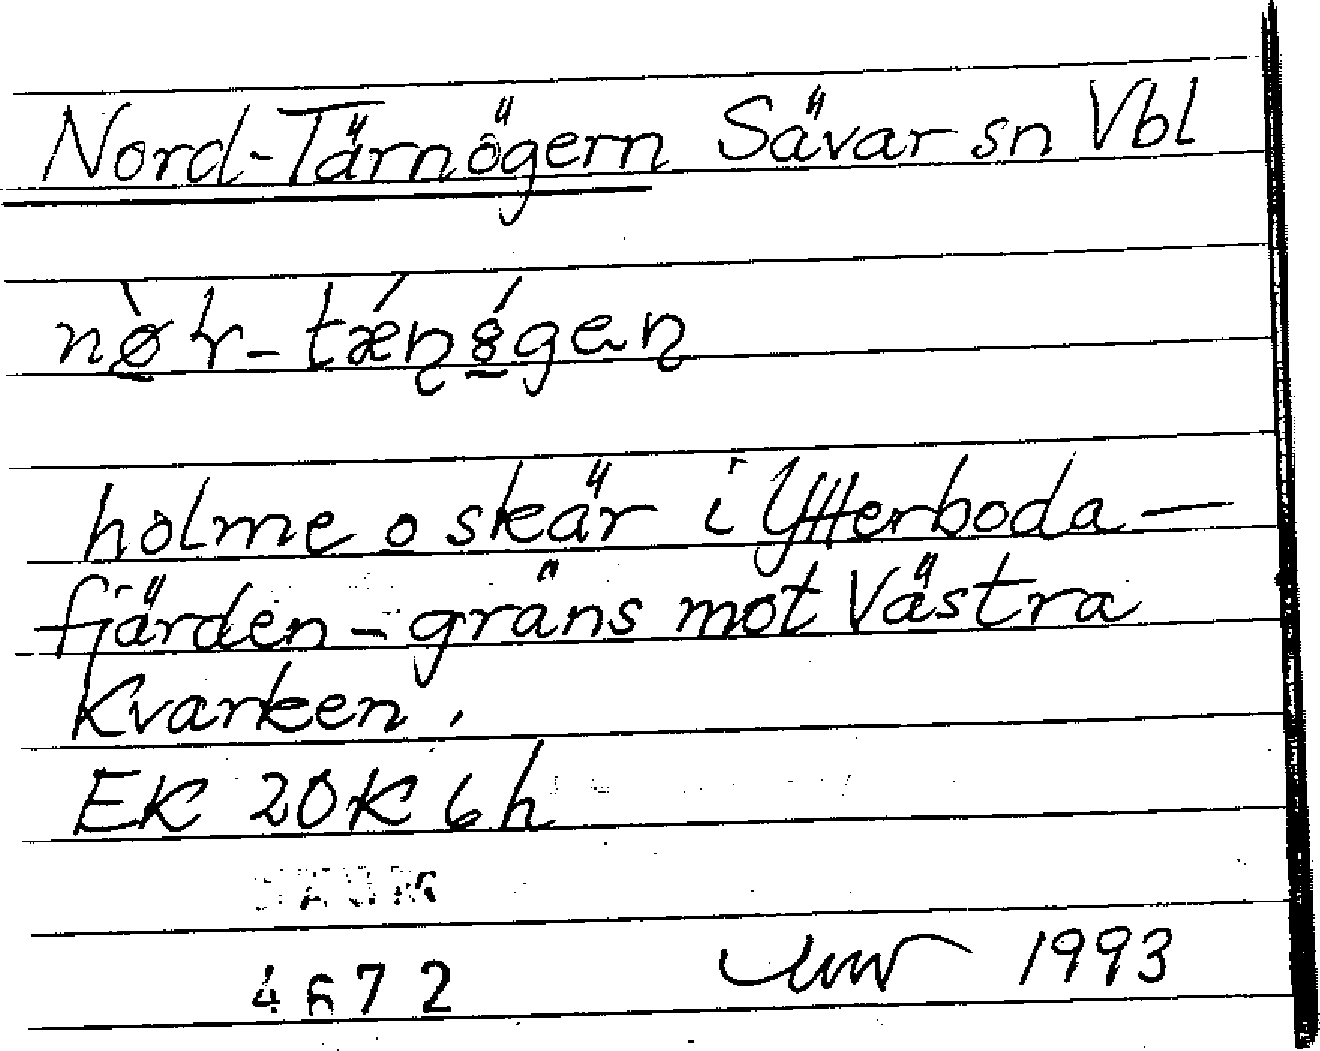 Nord-Tärnögern Sävar sn Vbl
holme o skär i Ytterboda-
fjärden - gräns mot Västra
Kvarken.
EK 20K 6h
DAUM
4672 1993